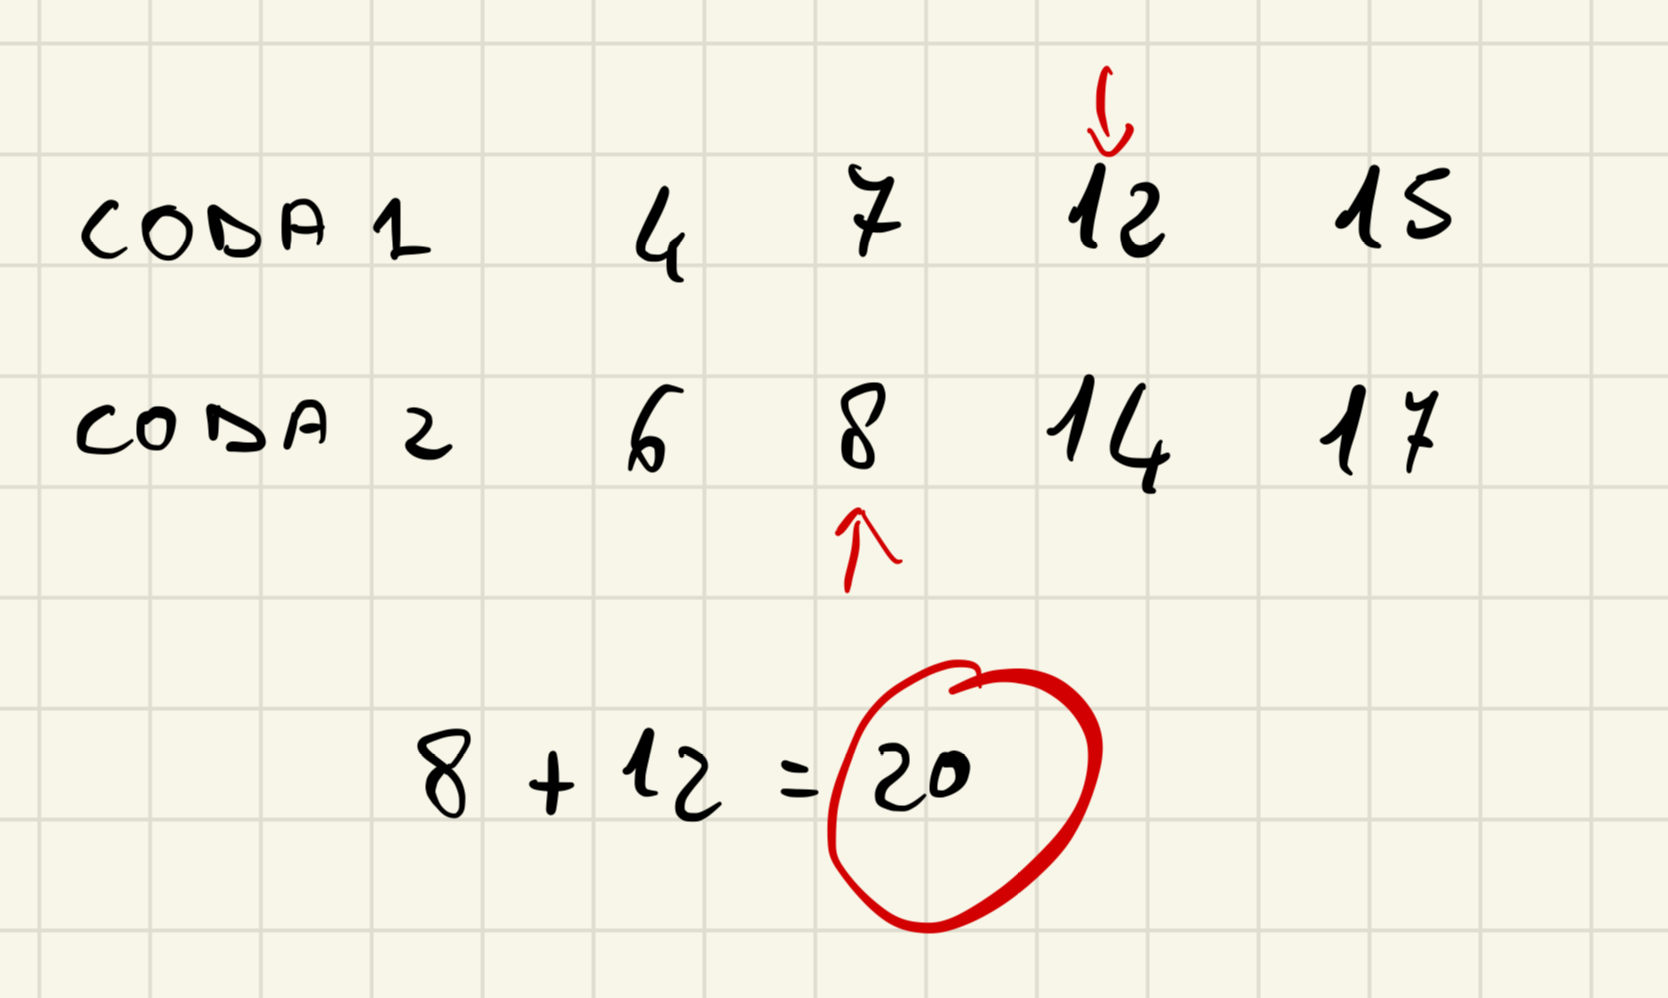 CODA 1 4 7 12 15
CODA 2 6 8 14 17
8 + 12 = 20